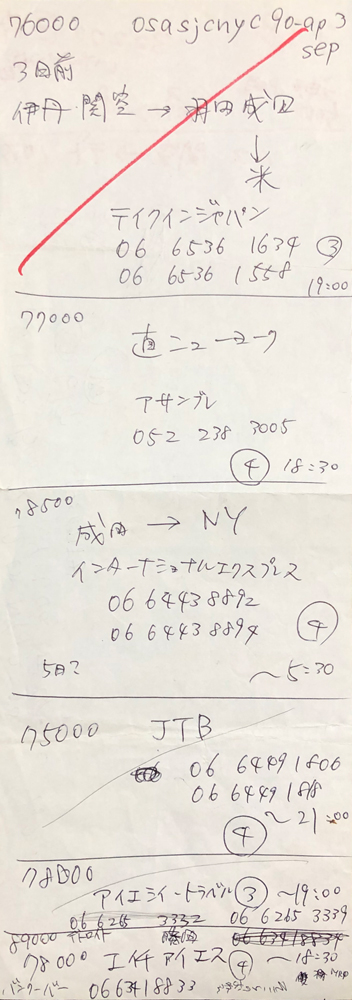 76000 osasjcnyc 90-ap 3
sep
3日前
伊丹・関空 → 羽田成田
↓
米
テイクインジャパン
06 6536 1634 ③
06 6536 1558 19:00
77000
直ニューヨーク
アサンプレ
052 238 3005
④ 18:30
78500
成田 → NY
インターナショナルエクスプレス
06 6443 8892
06 6443 8894 ④
5日? ~5:30
75000 JTB
06 6449 1806
06 6449 1818
④ ~21:00
78000
アイエミイートラベル ③ ~19:00
06 6265 3332 06 6265 3339
89000 デトロイト
78000 エイチアイエス ④ ~18:30
バンクーバー 06 6341 8833